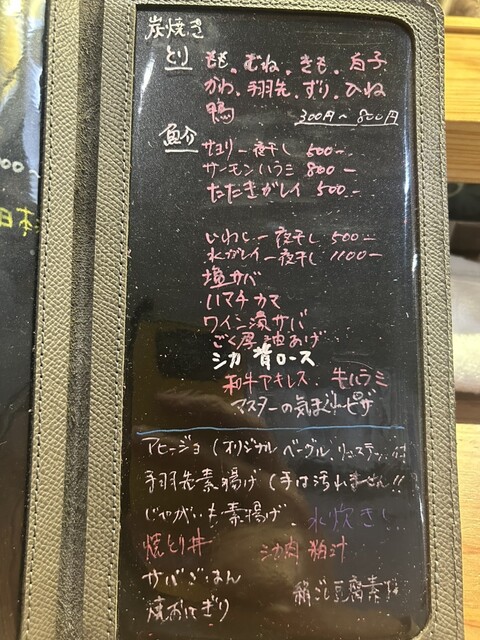 炭焼き
とり もも。むね。きも。白子
かわ。手羽先。ずり。ひね
鴨 300円〜800円
魚介 サヨリ一夜干し 500ー
サーモンハラミ 800ー
たたきガレイ 500ー
いわし一夜干し 500ー
水ガレイ一夜干し 1100ー
塩サバ
ハマチカマ
ワイン漬サバ
ごく厚油あげ
シカ 背ロース
和牛アキレス. 牛ハラミ
マスターの気まぐれピザ
アヒージョ (オリジナルベーグル,リュスティック付
手羽先素揚げ (手は汚れません!!
じゃがいも素揚げ. 水炊き
焼とり丼 シカ肉 粕汁
サバごはん
焼おにぎり 絹ごし豆腐
00〜
日本